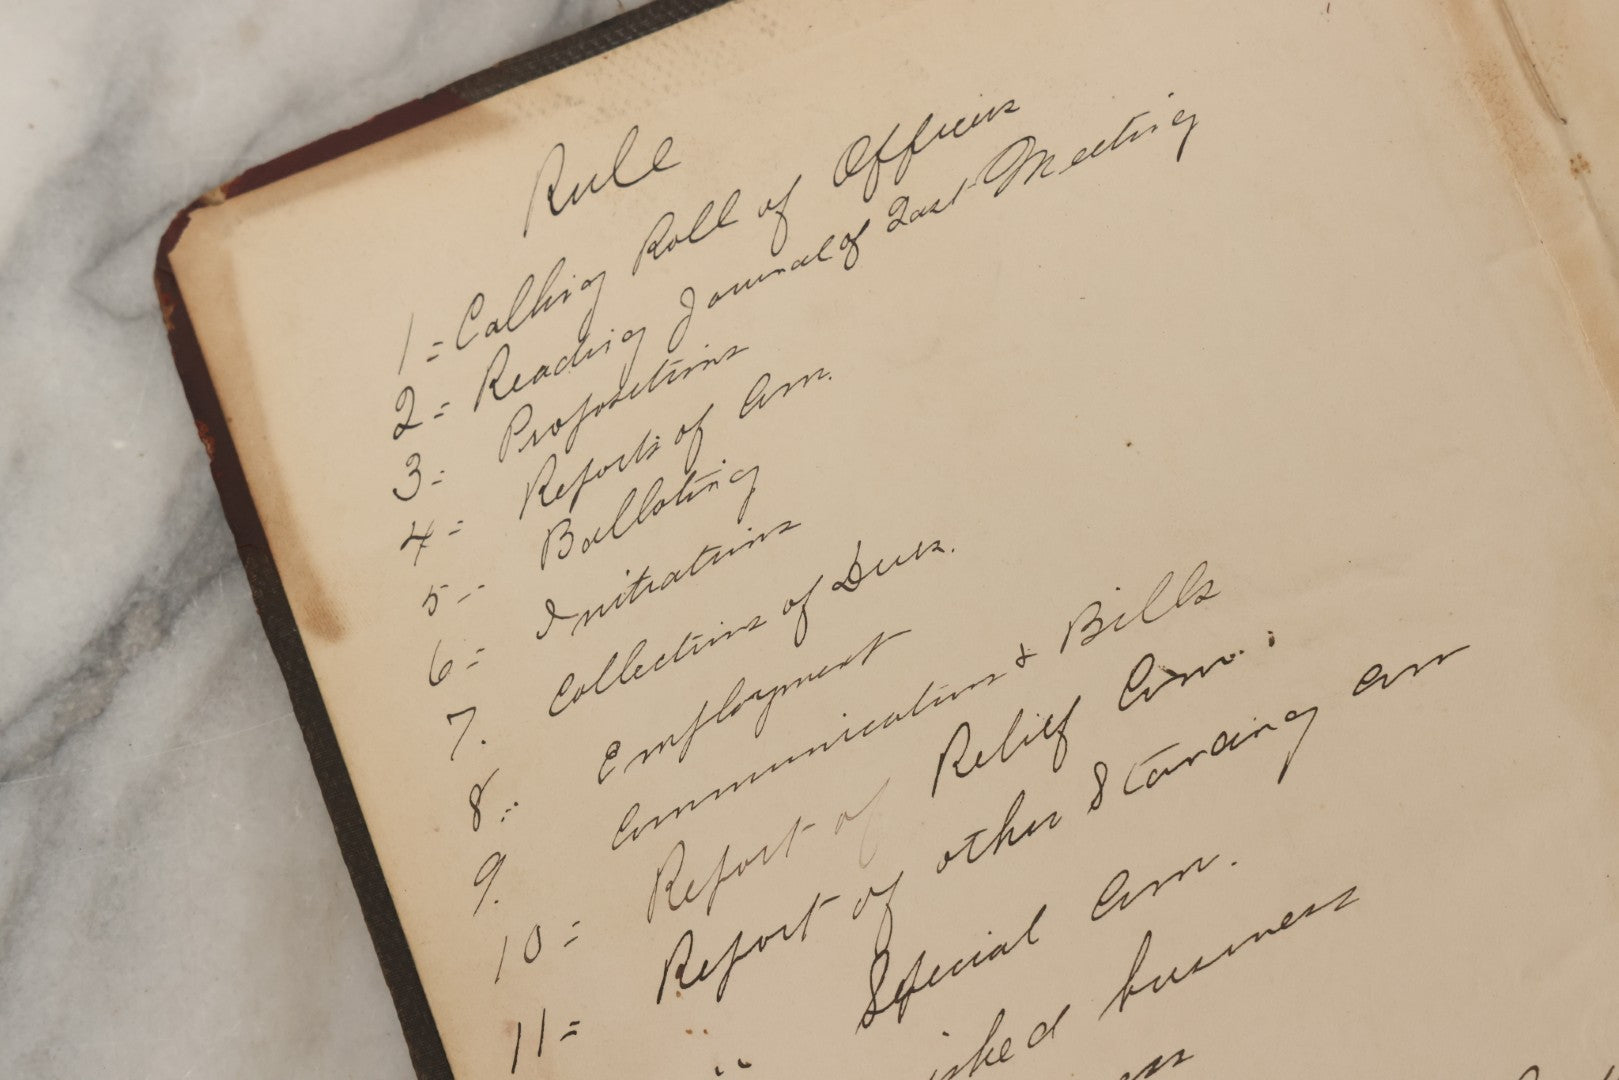 Rule
1= Calling Roll of Officers
2= Reading Journal of Last Meeting
3= Propositions
4= Reports of Com.
5-- Balloting
6= Initiations
7. Collections of Dues.
8.. Employment
9. Communications & Bills
10= Report of Relief Com.
11= Report of other Standing Com
" Special Com.
business